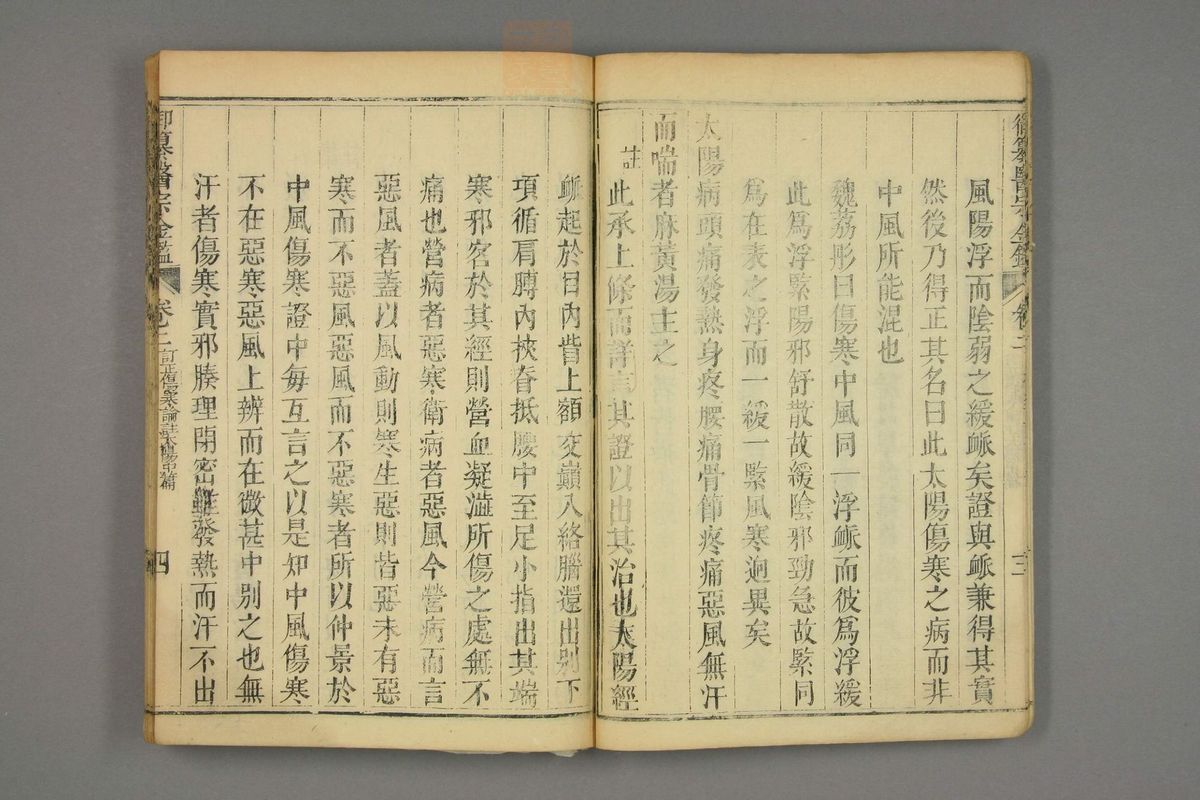 御纂醫宗金鑑 卷二 三
風陽浮而陰弱之緩脈矣證與脈兼得其實
然後乃得正其名曰此太陽傷寒之病而非
中風所能混也
魏荔彤曰傷寒中風同一浮脈而彼爲浮緩
此爲浮緊陽邪舒散故緩陰邪勁急故緊同
爲在表之浮而一緩一緊風寒迥異矣
太陽病頭痛發熱身疼腰痛骨節疼痛惡風無汗
而喘者麻黃湯主之
註此承上條而詳言其證以出其治也太陽經
脈起於目內眥上額交巔入絡腦還出别下
項循肩膊內挾脊抵腰中至足小指出其端
寒邪客於其經則營血凝澁所傷之處無不
痛也營病者惡寒衛病者惡風今營病而言
惡風者蓋以風動則寒生惡則皆惡未有惡
寒而不惡風惡風而不惡寒者所以仲景於
中風傷寒證中每互言之以是知中風傷寒
不在惡寒惡風上辨而在微甚中别之也無
汗者傷寒實邪腠理閉密雖發熱而汗不出
御纂醫宗金鑑 卷二 訂正傷寒論註太陽中篇 四